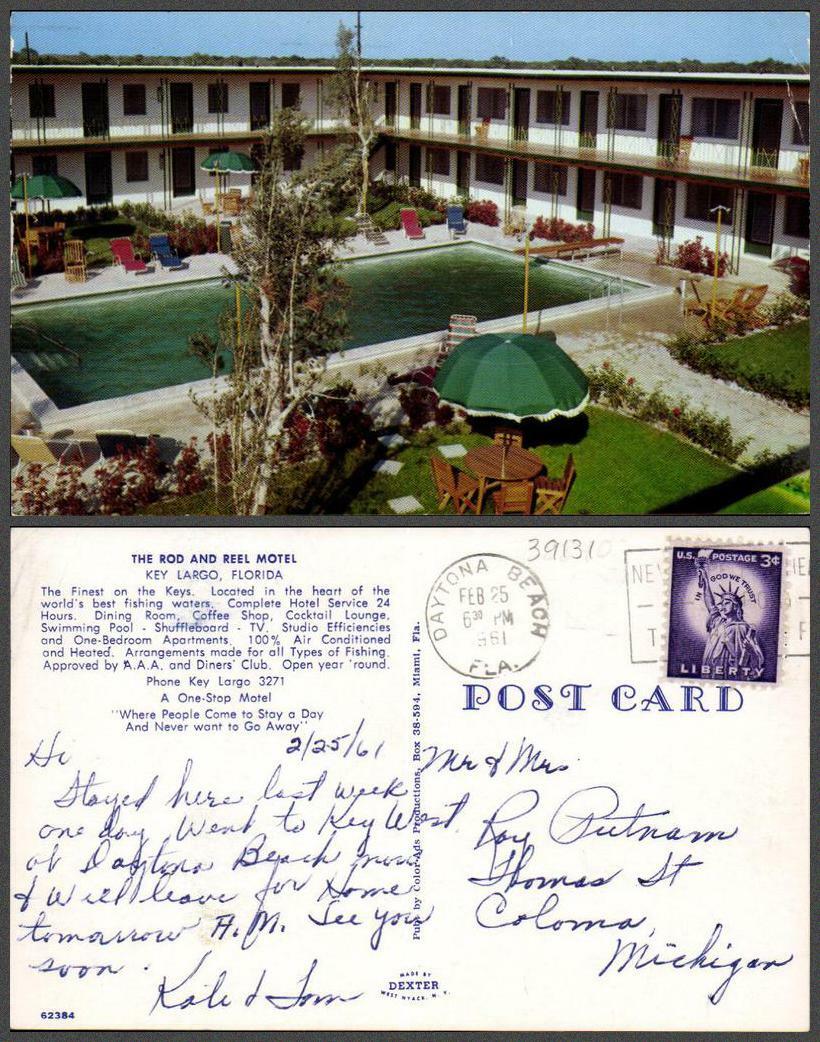 THE ROD AND REEL MOTEL
KEY LARGO, FLORIDA
The Finest on the Keys. Located in the heart of the
world's best fishing waters. Complete Hotel Service 24
Hours. Dining Room, Coffee Shop, Cocktail Lounge,
Swimming Pool - Shuffleboard - TV, Studio Efficiencies
and One-Bedroom Apartments. 100% Air Conditioned
and Heated. Arrangements made for all Types of Fishing.
Approved by A.A.A. and Diners' Club. Open year 'round.
Phone Key Largo 3271
A One-Stop Motel
"Where People Come to Stay a Day
And Never want to Go Away"
2/25/61
Hi
Stayed here last week
one day. Went to Key West.
at Daytona Beach now
& Will leave for Home
tomorrow A.M. See you
soon.
Kate & Tom
62384
Pub. by Color-Ads Productions, Box 38-594, Miami, Fla.
MADE BY
DEXTER
WEST NYACK, N. Y.
391310
DAYTONA BEACH
FEB 25
6 30 PM
1961
FLA.
U.S. POSTAGE 3¢
IN GOD WE TRUST
LIBERTY
POST CARD
Mr & Mrs
Roy Putnam
Thomas St
Coloma,
Michigan